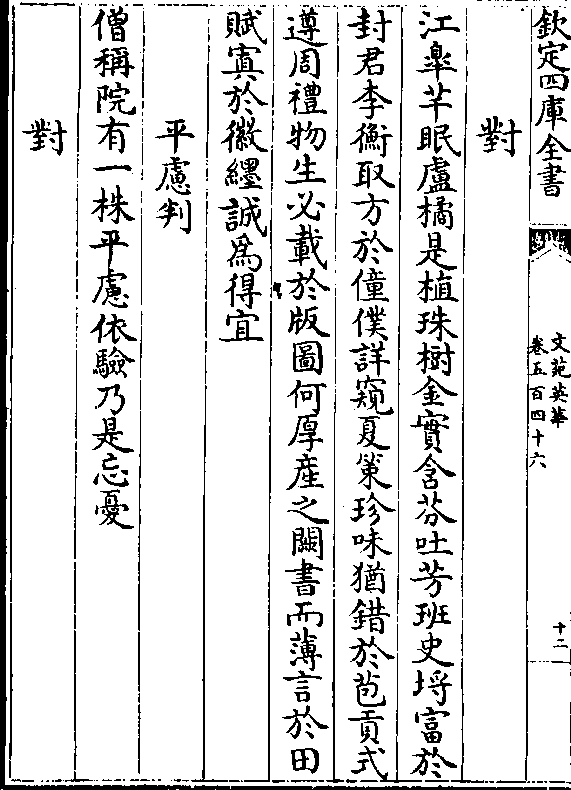 欽定四庫全書
文苑英華
卷五百四十六
十二
對
江臯芊眠盧橘是植珠樹金實含芬吐芳班史埒富於
封君李衡取方於僮僕詳窺夏篆珍味猶錯於苞貢式
遵周禮物生必載於版圖何厚産之闕書而薄言於田
賦寘於徽纆誠為得宜
平慮判
僧稱院有一株平慮依驗乃是忘憂
對